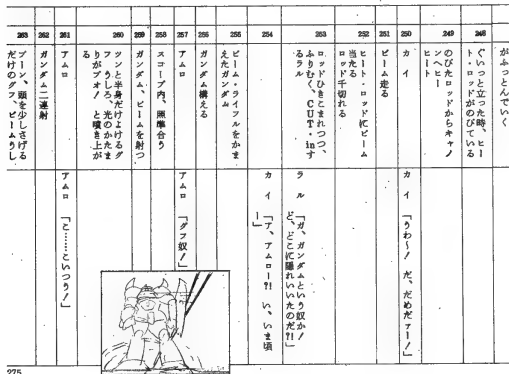 がふっとんでいく
248
ぐいっと立った時、ヒー
ト・ロッドがのびている
249
のびたロッドからキャノ
ンへヒー
ヒート
250
カイ
カイ 「うわ〜！ だ、だめだァー！」
251
ビーム走る
252
ヒート・ロッドにビーム
当たる
ロッド千切れる
253
ロッドひきこまれつつ、
ふりむく、CUT・inす
るラル
ラル 「ガ、ガンダムという奴か！
ど、どこに隠れいいたのだ?!」
254
カイ 「ア、アムロー?! い、いま頃
ー」
255
ビーム・ライフルをかま
えたガンダム
256
ガンダム構える
257
アムロ
アムロ 「グフ奴！」
258
スコープ内、照準合う
259
ガンダム、ビームを射つ
260
ツンと半身だけよけるグ
フ うしろ、光のかたま
りがブオ！ と噴き上が
る
261
アムロ
アムロ 「こ……こいつう！」
262
ガンダム二連射
263
ブーン、頭を少しさげる
だけのグフ、ビームうし
275